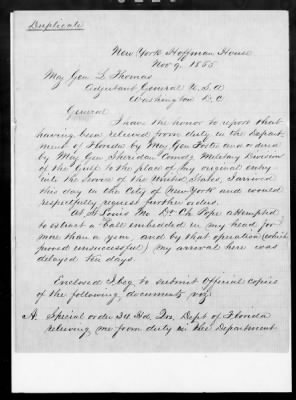 Duplicate
New York Hoffman House
Nov 9. 1865
Maj Gen L Thomas
Adjutant General U.S.A
Washington D.C
General
I have the honor to report that
having been relieved from duty in the Depart-
ment of Florida by Maj Gen Foster and ordered
by Maj Gen Sheridan Comdg Military Division
of the Gulf to the place of my original entry
into the Service of the United States, I arrived
this day in the City of New York and would
respectfully request further orders.
At St Louis Mo. Dr Ch. Pope attempted
to extract a ball embedded in my head for
more than a year and by that operation (which
proved unsuccessful) my arrival here was
delayed ten days.
Enclosed I beg to submit Official copies
of the following documents viz
A. Special order Hd. Qrs. Dept of Florida
relieving me from duty in the Department